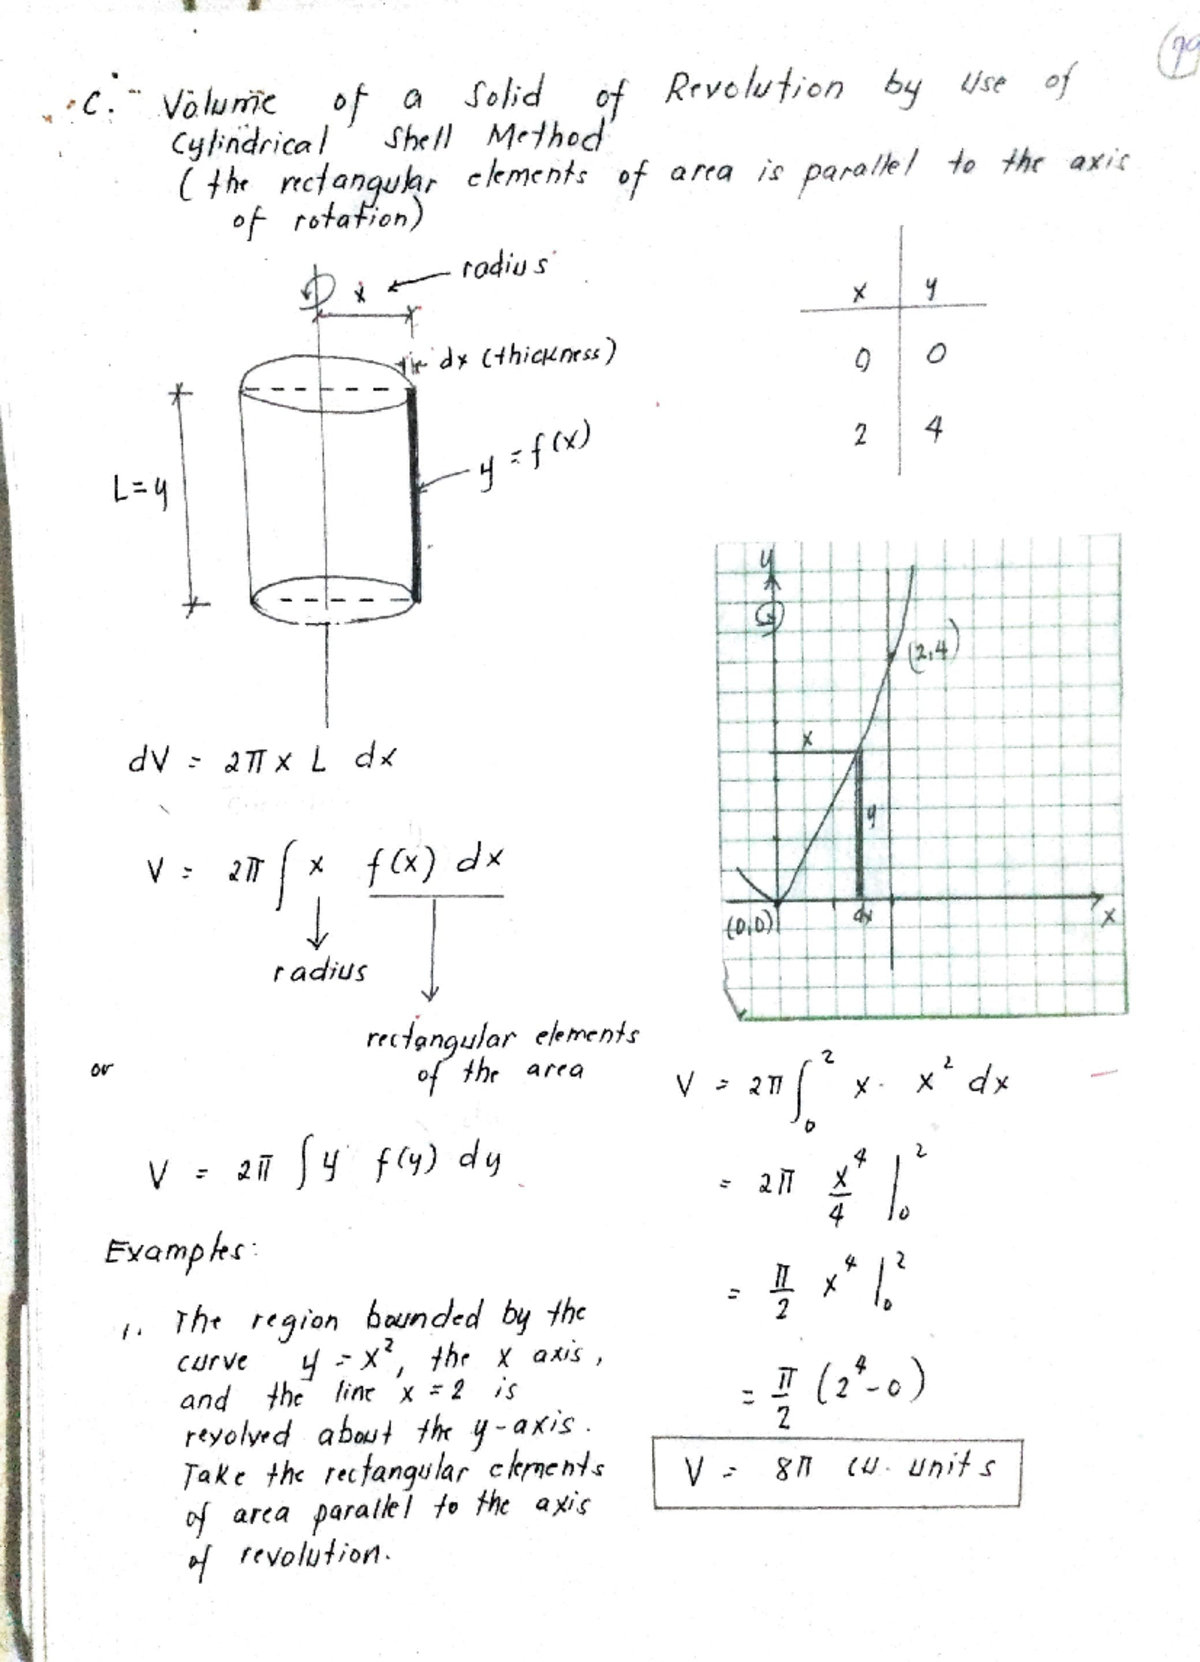 C. Volume of a Solid of Revolution by Use of
Cylindrical Shell Method
(the rectangular elements of area is parallel to the axis
of rotation)
x
radius
dx (thickness)
L=y
y = f(x)
x y
0 0
2 4
y
(2,4)
x
y
(0,0)
dx
x
dV = 2π x L dx
V = 2π ∫ x f(x) dx
radius
rectangular elements
of the area
or
V = 2π ∫ y f(y) dy
Examples:
1. The region bounded by the
curve y = x², the x axis,
and the line x = 2 is
revolved about the y-axis.
Take the rectangular elements
of area parallel to the axis
of revolution.
V = 2π ∫₀² x · x² dx
= 2π x⁴/4 |₀²
= π/2 x⁴ |₀²
= π/2 (2⁴-0)
V = 8π cu. units